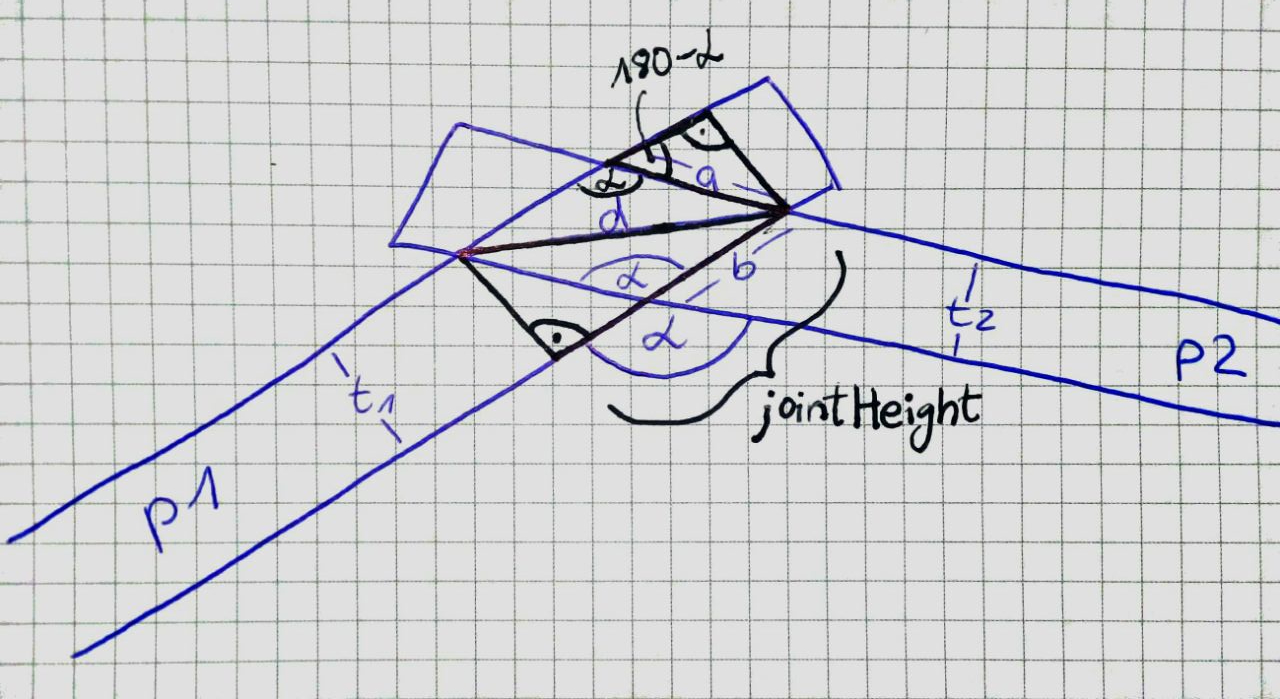 180-α
α
a
d
α
b
t2
α
p2
t1
jointHeight
p1